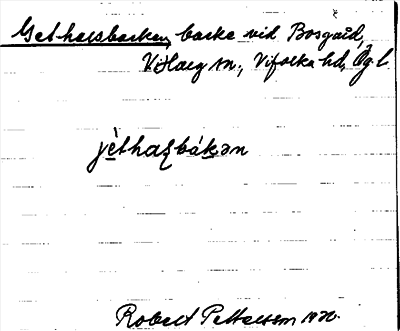 Gethalsbacken, backe vid Bosgård,
Vifolka hd, Ög. l.
jèthaʂbákən
Robert Pettersson